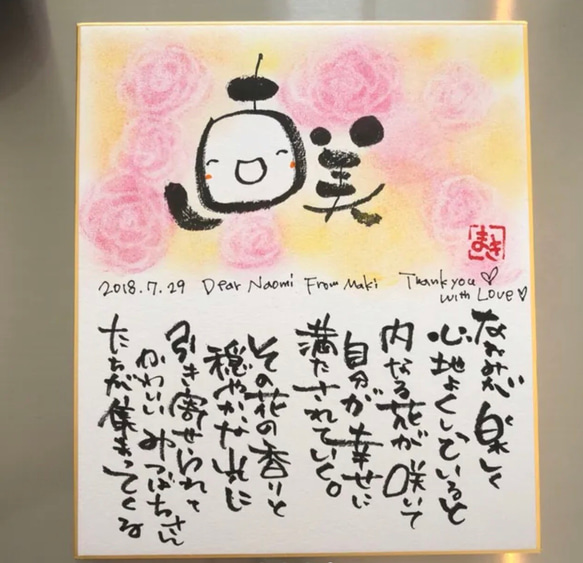 直美
まき
2018.7.29 Dear Naomi From Maki Thank you♡
with Love♡
なおみが 楽しく
心地よくしていると
内なる花が咲いて
自分が幸せに
満たされていく。
その花の香りと
穏やかな光に
引き寄せられて
かわいいみつばちさん
たちが集まってくる